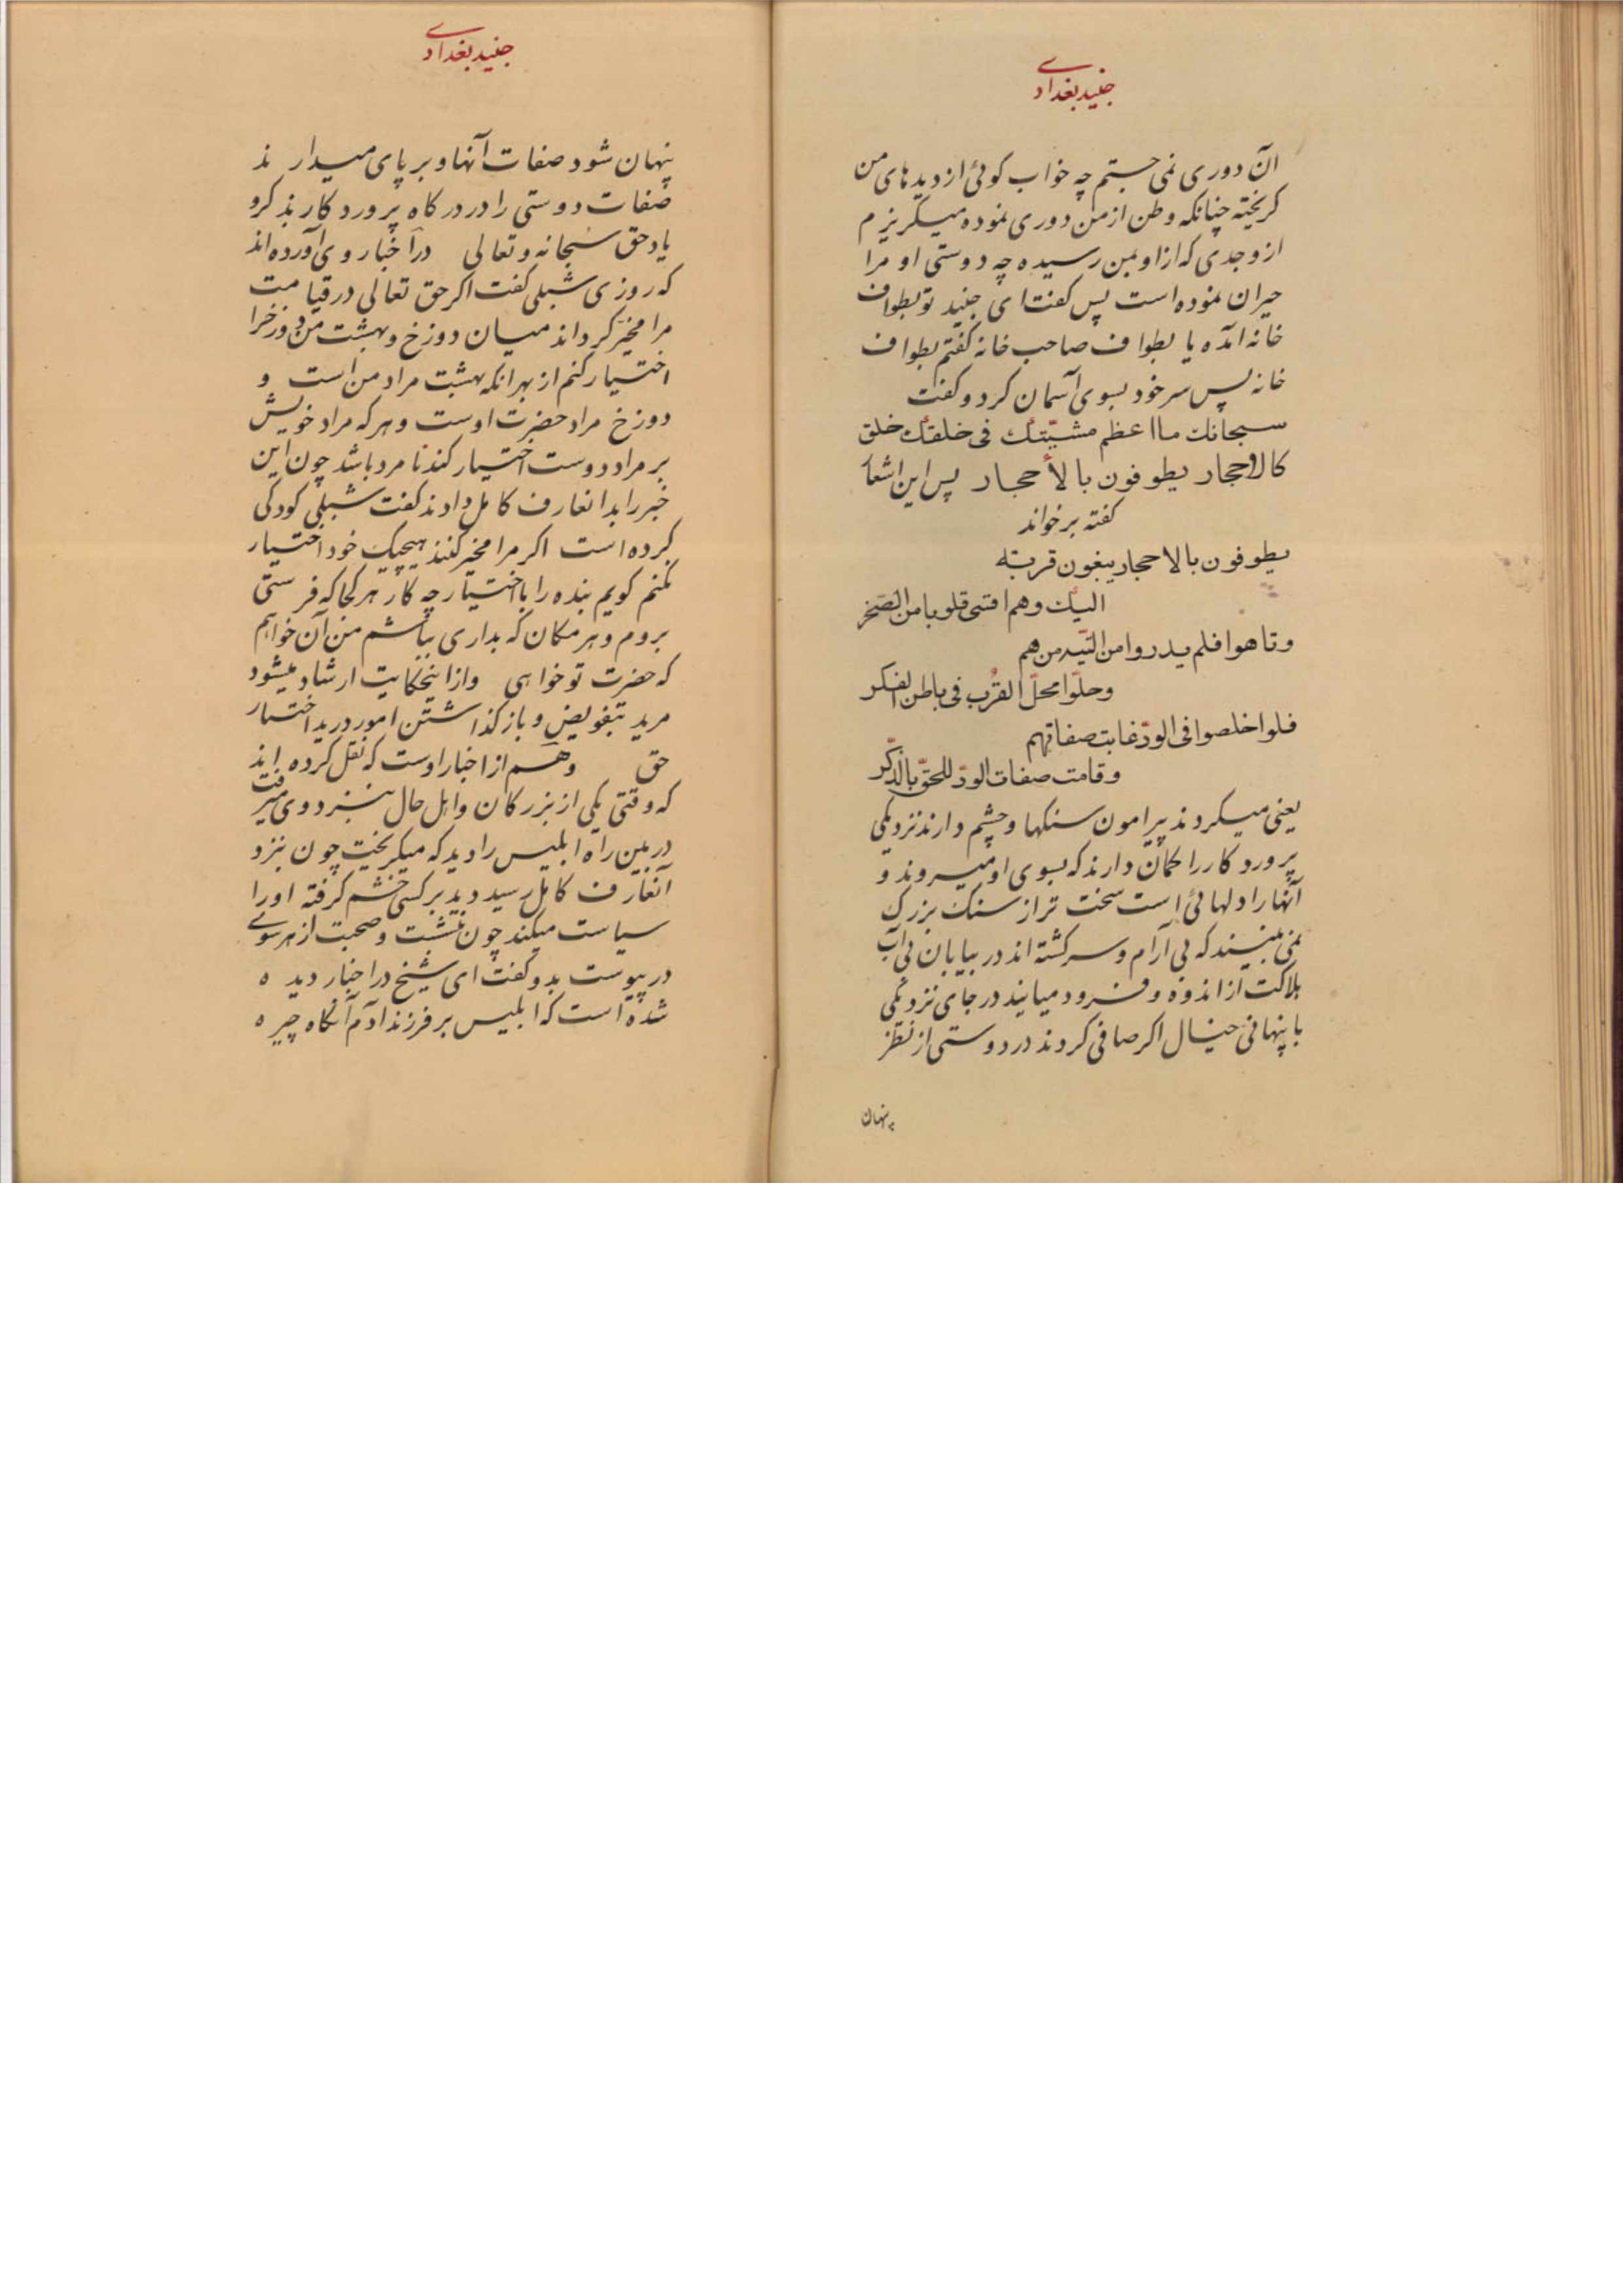 جنید بغدادی
آن دوری نمی جستم چه خواب گوئی از دیده‌های من
کریخته چنانکه وطن از من دوری نموده میکریزم
از وجدی که از او بمن رسیده چه دوستی او مرا
حیران نموده است پس کفت ای جنید تو بطواف
خانه آمده یا بطواف صاحب خانه کفتم بطواف
خانه پس سر خود بسوی آسمان کرد و کفت
سبحانك ما اعظم مشیّتك فی خلقك خلق
کالاحجار یطوفون بالأحجار پس این اشعا
کفته برخواند
یطوفون بالاحجار یبغون قربة
الیك وهم اقسی قلوبا من الصّخر
وتاهوا فلم یدروا من التّیه من هم
وحلّوا محلّ القرب فی باطن الفکر
فلو اخلصوا فی الودّ غابت صفاتهم
وقامت صفات الودّ للحقّ بالذّکر
یعنی میکردند پیرامون سنکها و چشم دارند نزدیکی
پرورد کار را کمان دارند که بسوی او میروند و
آنها را دلهائی است سخت تر از سنک بزرک
نمی بینند که بی آرام و سرکشته اند در بیابان بی آب
هلاکت از اندوه و فرود میایند در جای نزدیکی
با پنهانی خیال اکر صافی کردند در دوستی از نظر
پنهان
جنید بغدادی
پنهان شود صفات آنها و بر پای میدارند
صفات دوستی را در درکاه پرورد کار بذکر و
یاد حق سبحانه و تعالی در اخبار وی آورده اند
که روزی شبلی کفت اکر حق تعالی در قیامت
مرا مخیّر کرداند میان دوزخ و بهشت من دوزخرا
اختیار کنم از بهر آنکه بهشت مراد من است و
دوزخ مراد حضرت اوست و هر که مراد خویش
بر مراد دوست اختیار کند نامرد باشد چون این
خبر را بدانعارف کامل دادند کفت شبلی کودکی
کرده است اکر مرا مخیر کنند هیچیک خود اختیار
نکنم کویم بنده را با اختیار چه کار هر کجا که فرستی
بروم و هر مکان که بداری بباشم من آن خواهم
که حضرت تو خواهی و از اینحکایت ارشاد میشود
مرید بتفویض و باز کذاشتن امور در ید اختیار
حق و هم از اخبار اوست که نقل کرده اند
که وقتی یکی از بزرکان و اهل حال بنزد وی میرفت
در بین راه ابلیس را دید که میکریخت چون بنزد
آنعارف کامل رسید دید بر کسی خشم کرفته او را
سیاست میکند چون بنشست و صحبت از هر سوی
در پیوست بدو کفت ای شیخ در اخبار دیده
شده است که ابلیس بر فرزند آدم آنکاه چیره